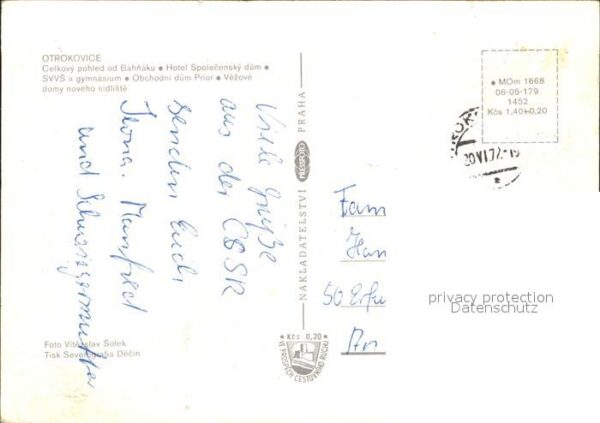 OTROKOVICE
Celkový pohled od Bahňáku • Hotel Společenský dům •
SVVŠ a gymnásium • Obchodní dům Prior • Věžové
domy nového sídliště
Viele Grüße
aus der ČSSR
senden Euch
Ilona. Manfred
und Schwiegermutter
NAKLADATELSTVÍ PRESSFOTO PRAHA
• MOm 1668
06-05-179
1452
Kčs 1,40+0,20
20.VI.72-19
Fam
Han
50 Erfu
privacy protection
Datenschutz
* Kčs 0,20 *
VE PROSPĚCH CESTOVNÍHO RUCHU
Foto Vítězslav Šolek
Tisk Severografia Děčín